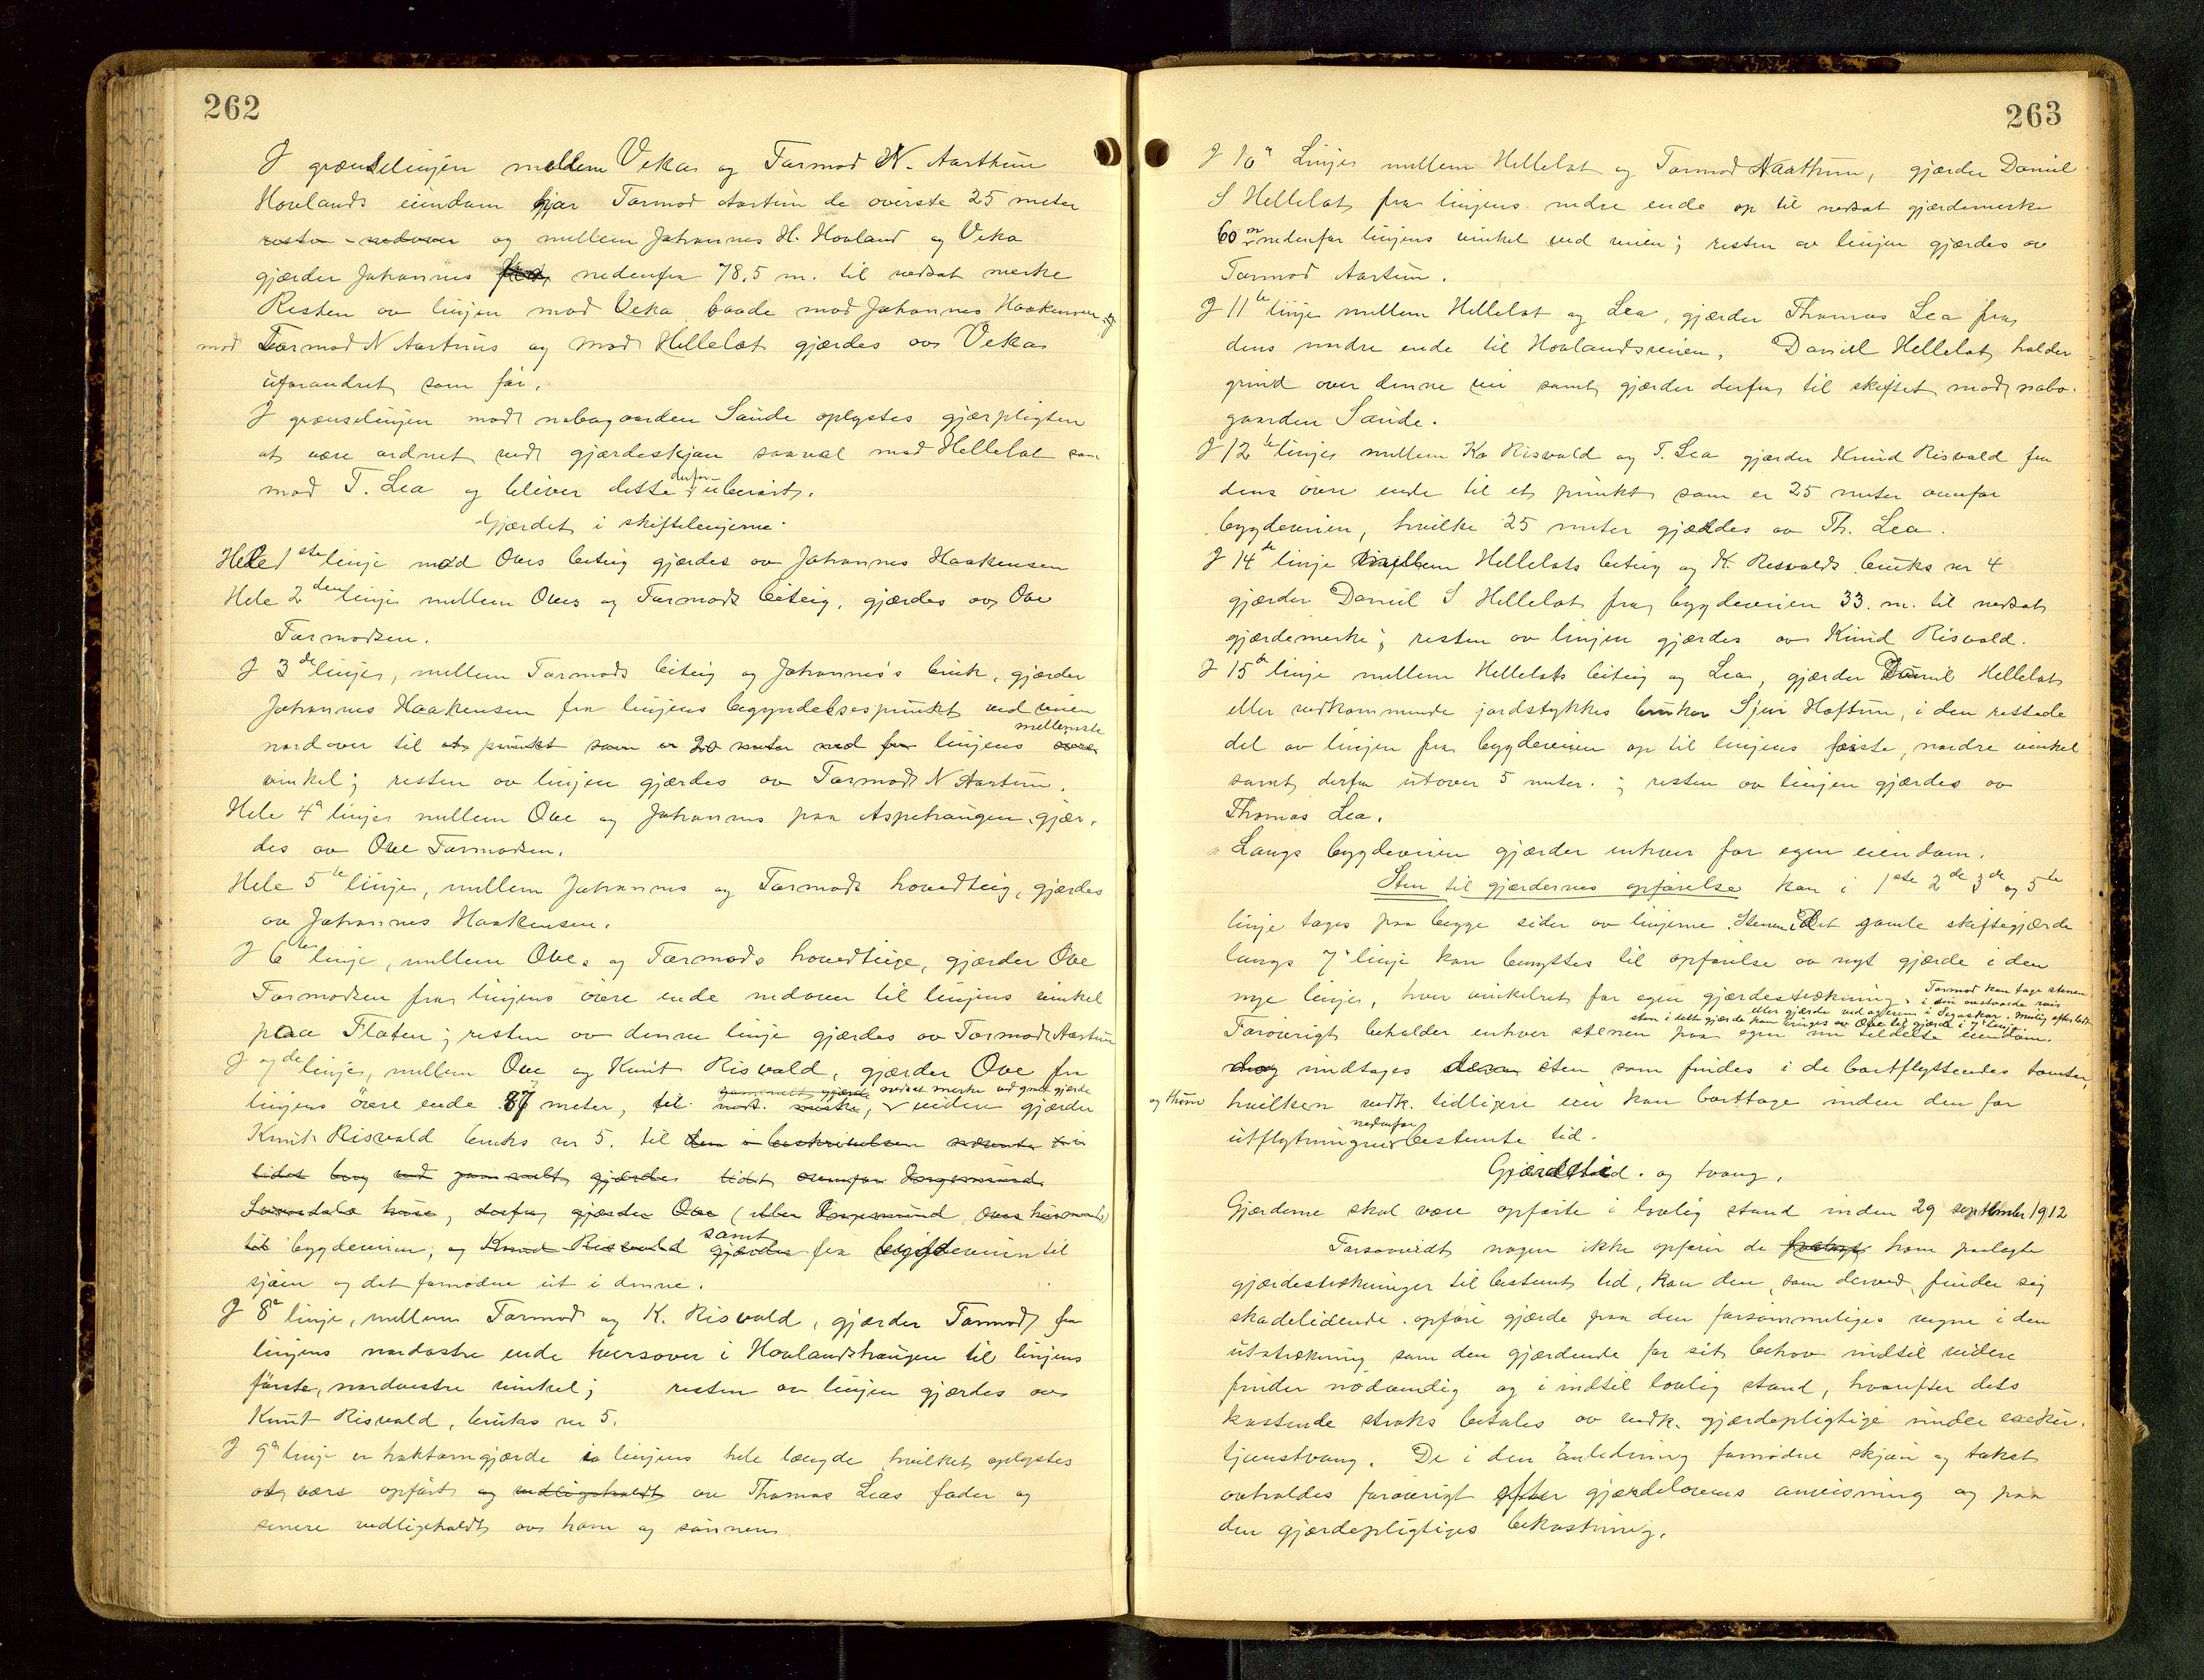 262
I grænselinjen mellem Veka og Tormod N. Aarthun
Hovlands eiendom gjær Tormod Aartun de øverste 25 meter
resten nedover og mellem Johannes H. Hovland og Veka
gjærder Johannes fra nedenfra 78.5 m. til nedsat merke
Resten av linjen mod Veka baade mod Johannes Haakensen og
mod Tormod N Aartuns og mod Hellelat gjærdes av Veka
uforandret som før.
I grænselinjen mod nabogaarden Sande oplystes gjærpligten
at være ordnet ved gjærdeskjøn saavel mod Hellelat som
mod T. Lea og bliver dette derfor uberørt.
Gjærdet i skiftelinjerne.
Hele 1ste linje mod Oves beiteig gjærdes av Johannes Haakensen
Hele 2den linje mellem Oves og Tormods beiteig, gjærdes av Ove
Tormodsen.
I 3de linje, mellem Tormods beiteig og Johannes's bruk, gjærder
Johannes Haakensen fra linjens begyndelsespunkt ved veien
nordover til et punkt som er 20 meter ned fra linjens øvre mellemste
vinkel; resten av linjen gjærdes av Tormod N Aartun.
Hele 4a linje mellem Ove og Johannes paa Aspehaugen gjær-
des av Ove Tormodsen.
Hele 5te linje, mellem Johannes og Tormods hovedteig, gjærdes
av Johannes Haakensen.
I 6te linje, mellem Oves og Tormods hovedteige, gjærder Ove
Tormodsen fra linjens øvre ende nedover til linjens vinkel
paa Flaten; resten av denne linje gjærdes av Tormod Aartun
I 7de linje, mellem Ove og Knut Risvold, gjærder Ove fra
linjens øvre ende 87 meter, til nedsat merke ved gmt gjærde videre gjærder
Knut Risvold bruks nr 5. til den i beskrivelsen nævnte
bygdeveien, og Knud Risvold samt gjærder fra bygdeveien til
sjøen og det fornødne ut i denne.
I 8a linje, mellem Tormod og K. Risvold, gjærder Tormod fra
linjens nordøstre ende tversover i Hovlandshaugen til linjens
første, nordvestre vinkel; resten av linjen gjærdes av
Knut Risvold, bruks nr 5.
I 9a linje er haktorngjærde i linjens hele længde hvilket oplystes
at være opført og vedligeholdt av Thomas Leas fader og
senere vedligeholdt av ham og sønnen.
263
I 10a Linje mellem Hellelat og Tormod N Aarthun, gjærder Daniel
S Hellelat fra linjens nedre ende op til nedsat gjærdemerke
60 m nedenfor linjens vinkel ved veien; resten av linjen gjærdes av
Tormod Aartun.
I 11te linje mellem Hellelat og Lea, gjærder Thomas Lea fra
dens nedre ende til Hovlandsveien. Daniel Hellelat holder
grind over denne vei samt gjærder derfra til skiftet mod nabo-
gaarden Sande.
I 12te linje mellem Kn Risvold og T. Lea gjærder Knud Risvold fra
dens øvre ende til et punkt som er 25 meter ovenfor
bygdeveien, hvilke 25 meter gjærdes av Th. Lea.
I 14de linje mellem Hellelats beiteig og K. Risvolds bruks nr 4
gjærder Daniel S Hellelat fra bygdeveien 33. m. til nedsat
gjærdemerke; resten av linjen gjærdes av Knud Risvold.
I 15de linje mellem Hellelats beiteig og Lea, gjærder Daniel Hellelat
eller vedkommende jordstykkes bruker Sjur Hoftun, i den rettede
del av linjen fra bygdeveien op til linjens første, nordre vinkel
samt derfra utover 5 meter.; resten av linjen gjærdes av
Thomas Lea.
Langs bygdeveien gjærder enhver for egen eiendom.
Sten til gjærdernes opførelse kan i 1ste 2de 3de og 5te
linje tages paa begge sider av linjerne. Stenen i Det gamle skiftegjærde
langs 7a linje kan benyttes til opførelse av nyt gjærde i den
nye linje, hver vinkelret for egen gjærdestrekning. Tormod kan tage stenen
i den ovstaaende røis
sten i dette gjærde kan bringes av Ove til gjærde i 7a linje.
Forøvrigt beholder enhver stenen paa egen nu tildelte eiendom.
dog undtages den sten som findes i de bortflyttendes tomter,
og thun hvilken vedk. tidligere eier kan borttage inden den for
utflytningen nedenfor bestemte tid.
Gjærdetid. og tvang.
Gjærderne skal være opførte i lovlig stand inden 29 september 1912
Forsaavidt nogen ikke opfører de ham paalagte
gjærdestrekninger til bestemt tid, kan den, som derved finder sig
skadelidende opføre gjærde paa den forsømmeliges vegne i den
utstrekning som den gjærdende for sit behov indtil videre
finder nødvendig og i indtil lovlig stand, hvorefter dets
kostende straks betales av vedk. gjærdepligtige under exeku-
tjonstvang. De i den anledning fornødne skjøn og takst
avholdes forøvrigt efter gjærdelovens anvisning og paa
den gjærdepligtiges bekostning.